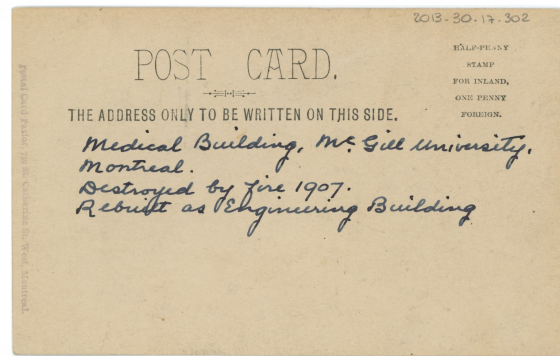 2013-30-17-302
POST CARD.
HALF-PENNY
STAMP
FOR INLAND,
ONE PENNY
FOREIGN.
THE ADDRESS ONLY TO BE WRITTEN ON THIS SIDE.
Medical Building, Mc Gill University,
Montreal.
Destroyed by fire 1907.
Rebuilt as Engineering Building
Postal Card St. Catherine St. West, Montreal.